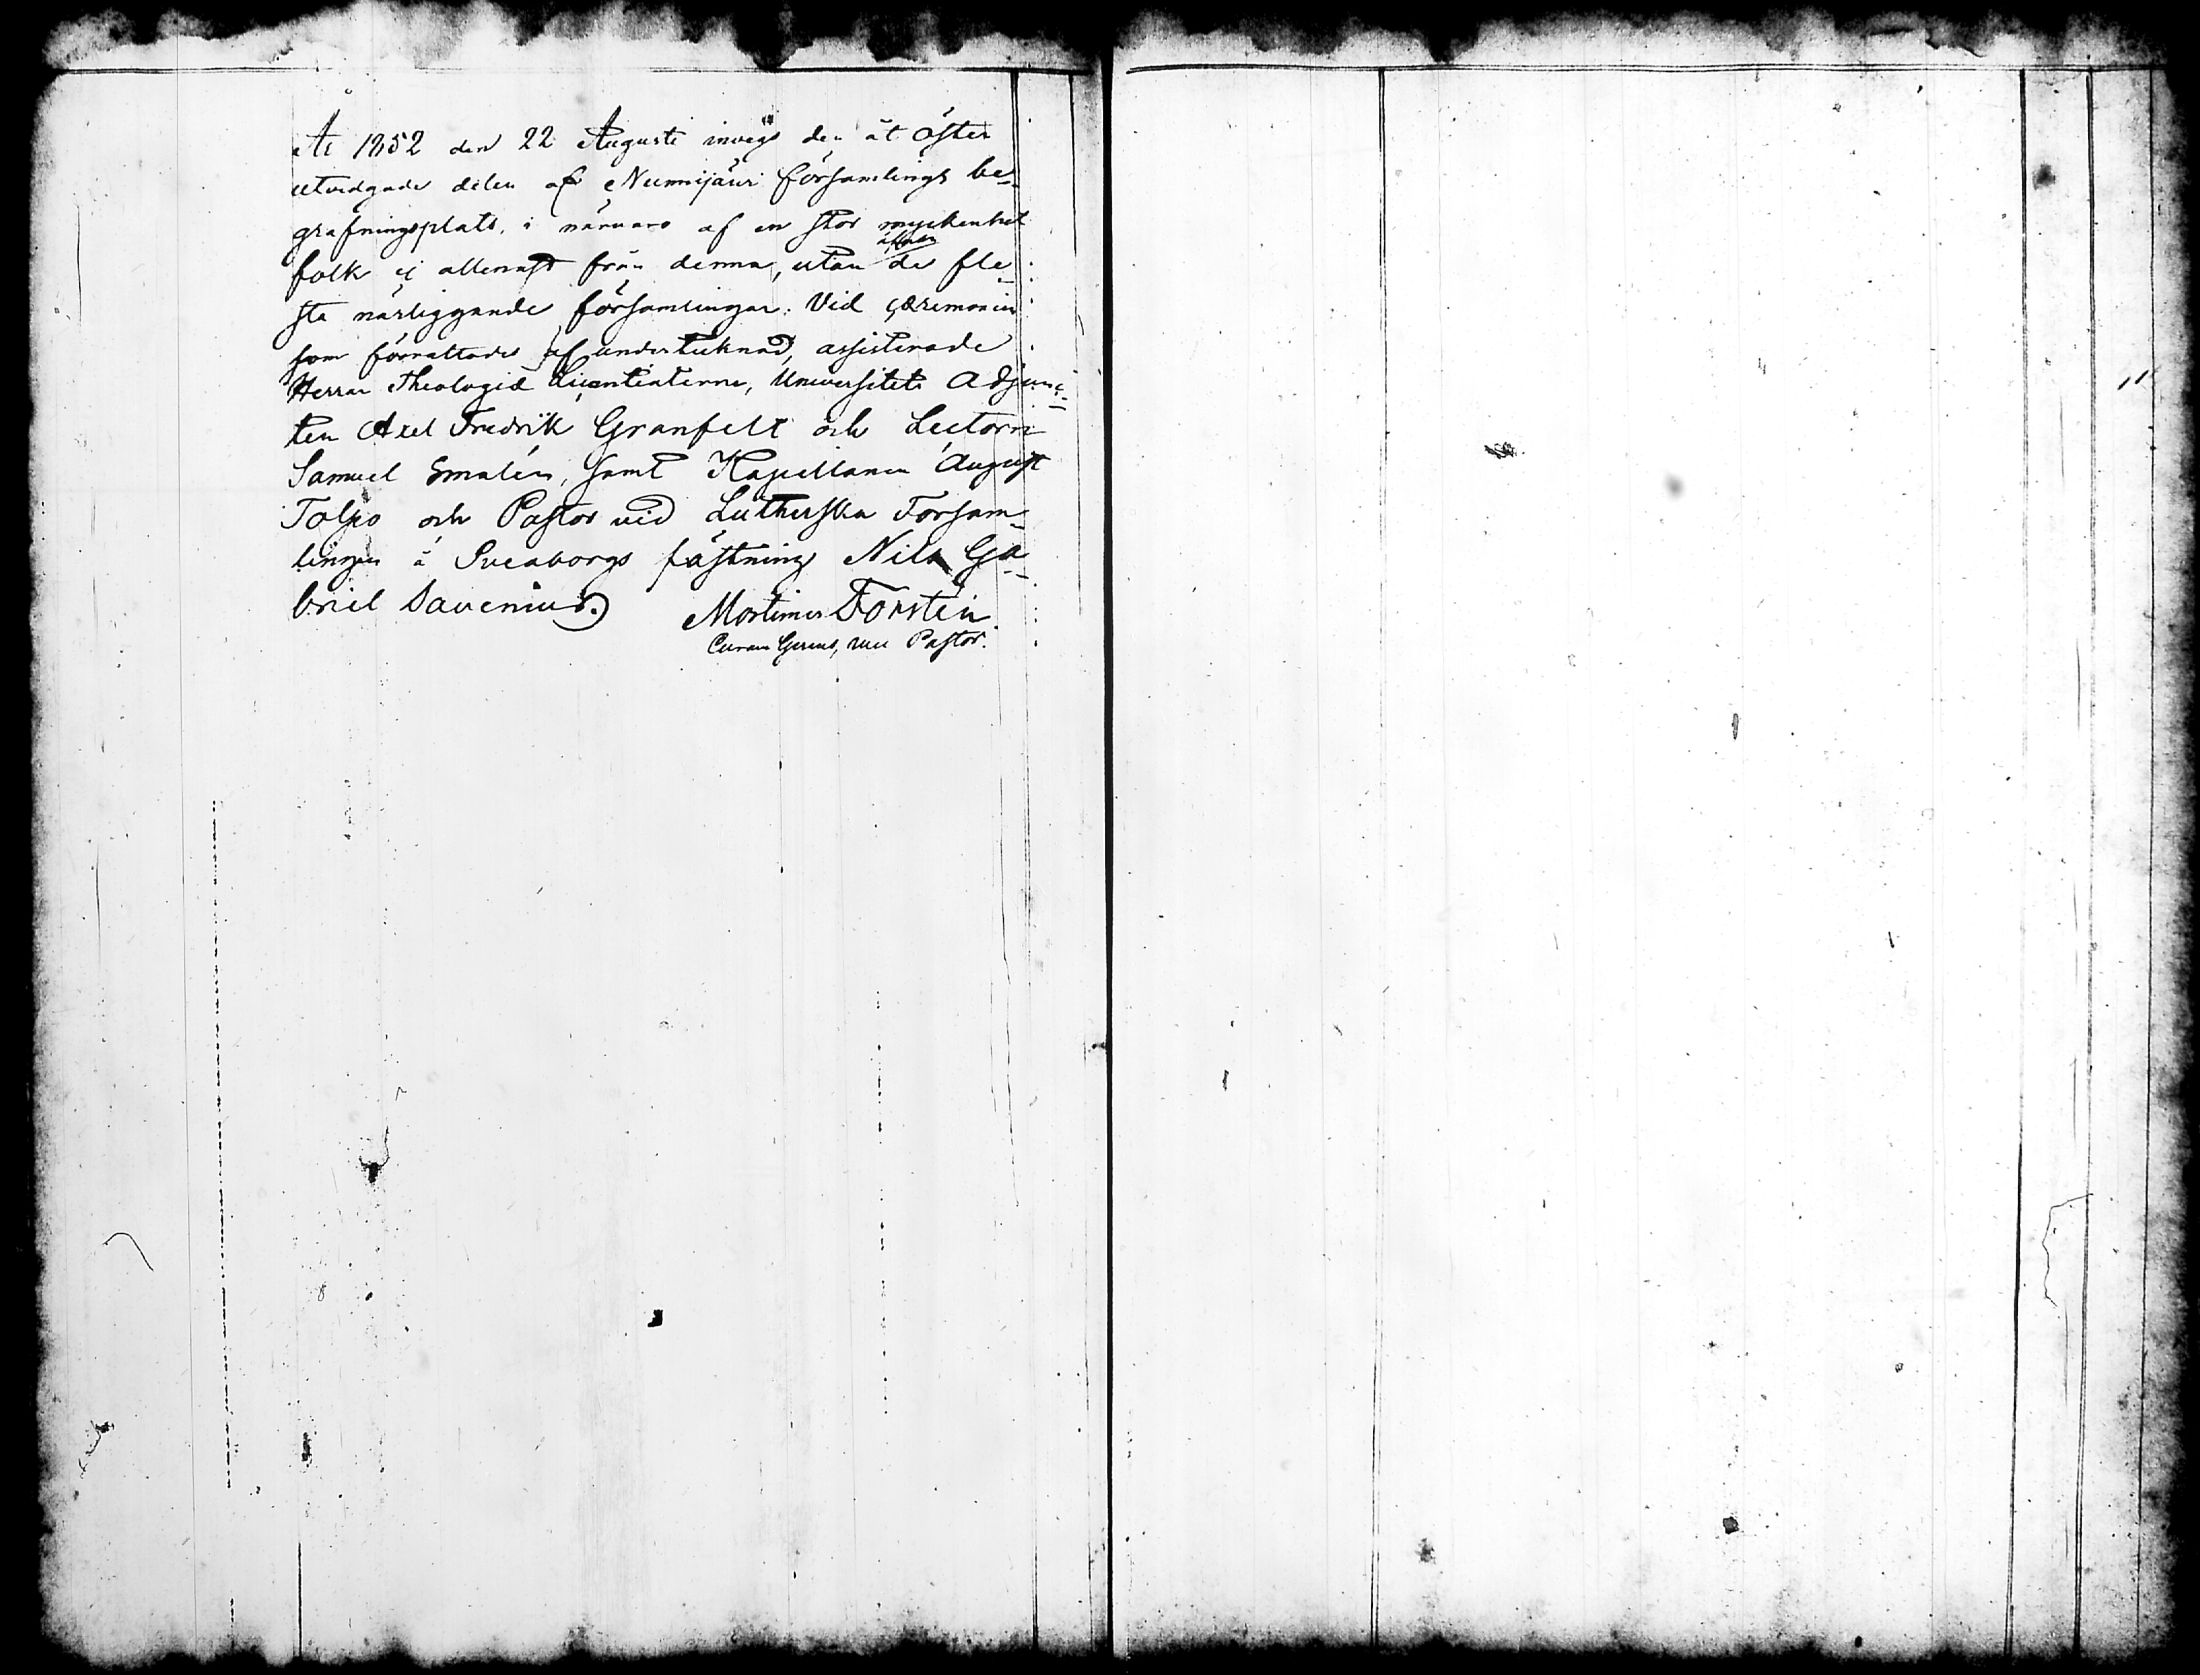 År 1852 den 22 Augusti invigs den åt öster
utvidgade delen af Nummijärvi församlings be-
grafningsplats, i närvaro af en stor myckenhet
folk ej allenast från denna, utan äfven de fle-
sta närliggande församlingar. Vid cæremonien
som förrättades af undertecknad, assisterade
Herrar Theologiæ Licentiaterne, Universitets Adjunk-
ten Axel Fredrik Granfelt och Lectorn
Samuel Smalén, samt Kapellanen August
Tolpo och Pastor vid Lutherska Försam-
lingen å Sveaborgs fästning Nils Ga-
briel Savenius.
Mortimer Forstén
Curam Gerens, vice Pastor.